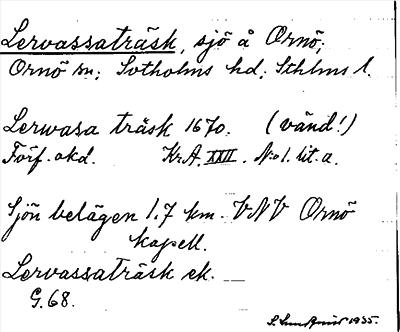 Lervassaträsk, sjö å Ornö;
Ornö sn; Sotholms hd; Sthlms l.
Lerwasa träsk 1670. (vänd!)
Förf. okd. Kr.A. XXII. No 1. lit. a.
Sjön belägen 1.7 km. VNV Ornö
kapell.
Lervassaträsk ek.
G. 68.
1935.